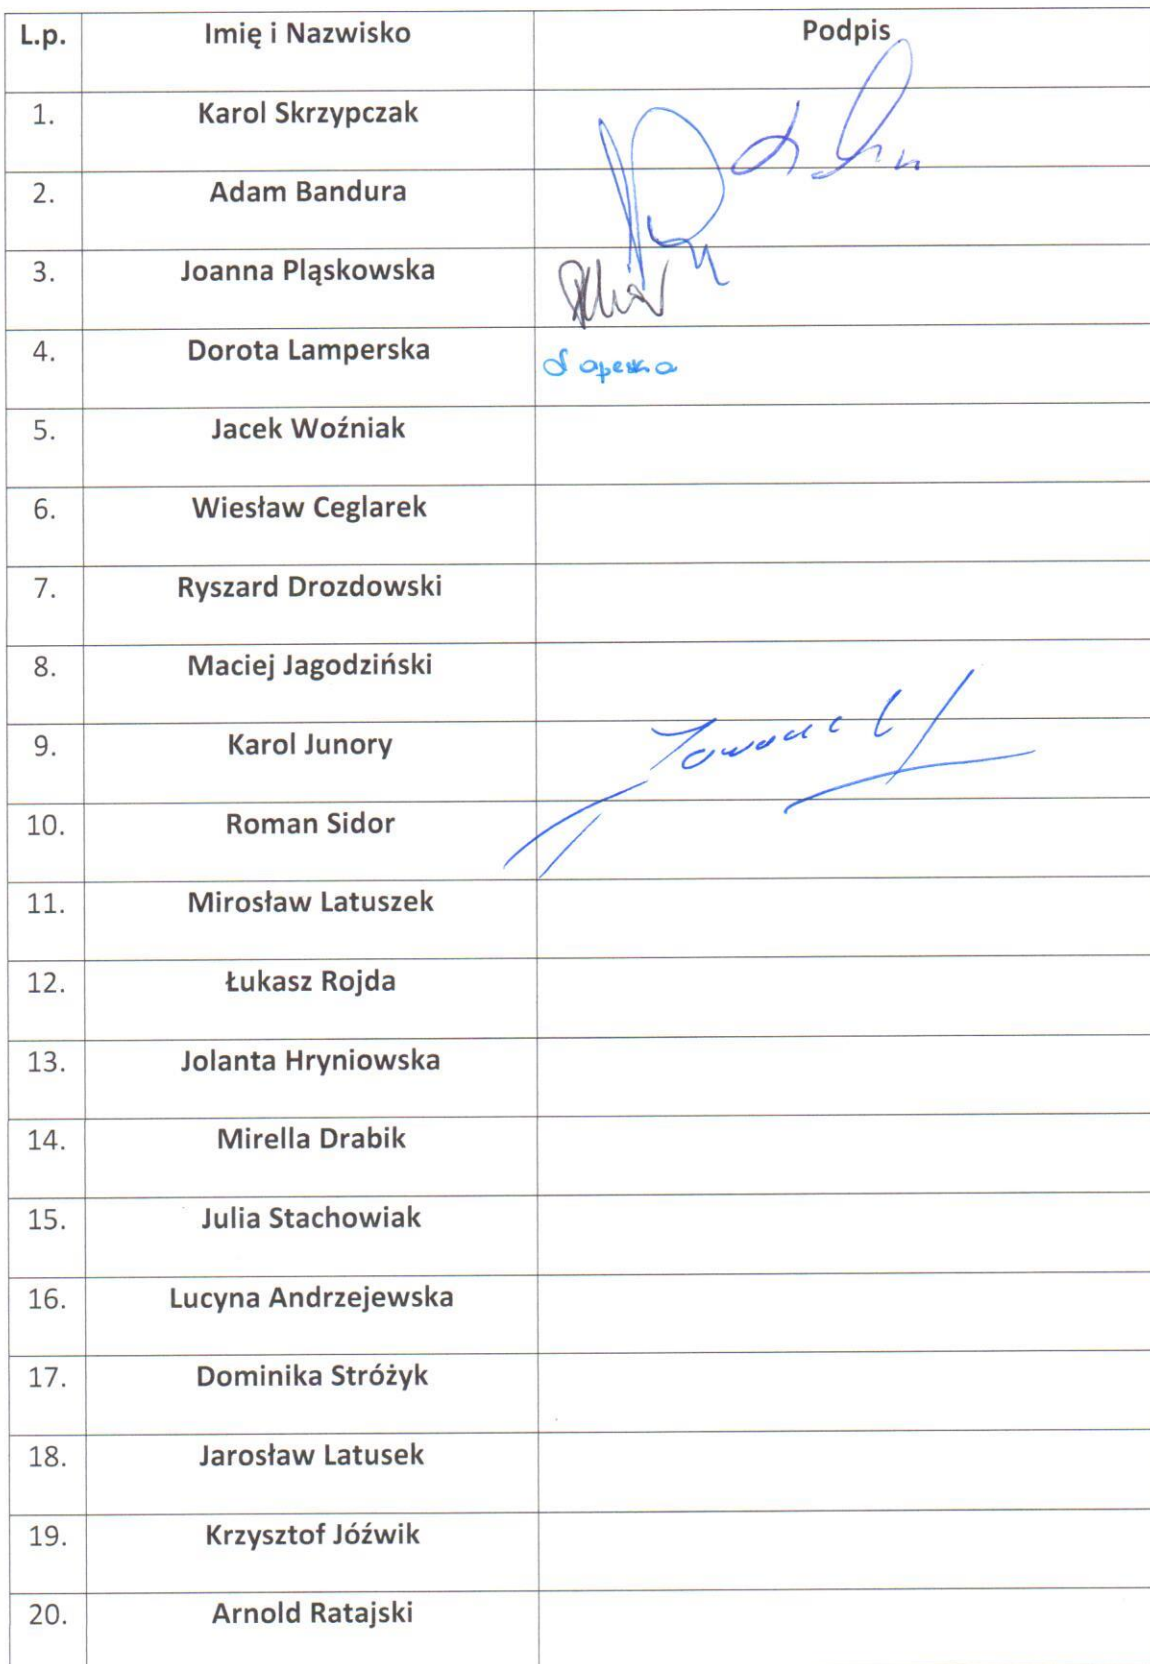 L.p. Imię i Nazwisko Podpis
1. Karol Skrzypczak
2. Adam Bandura
3. Joanna Pląskowska
4. Dorota Lamperska
5. Jacek Woźniak
6. Wiesław Ceglarek
7. Ryszard Drozdowski
8. Maciej Jagodziński
9. Karol Junory
10. Roman Sidor
11. Mirosław Latuszek
12. Łukasz Rojda
13. Jolanta Hryniowska
14. Mirella Drabik
15. Julia Stachowiak
16. Lucyna Andrzejewska
17. Dominika Stróżyk
18. Jarosław Latusek
19. Krzysztof Jóźwik
20. Arnold Ratajski